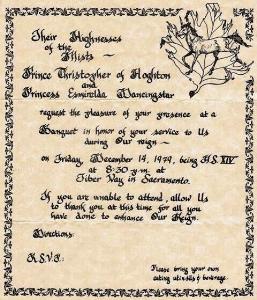 Their Highnesses
of the
Mists ~
Prince Christopher of Hoghton
and
Princess Esmirelda Dancingstar
request the pleasure of your presence at a
Banquet in honor of your service to Us
during Our reign ~
on Friday, December 14, 1979, being A.S. XIV
at 8:30 p.m. at
Fiber Way in Sacramento.
If you are unable to attend, allow Us
to thank you at this time for all you
have done to enhance Our Reign.
Directions:
R.S.V.P.
Please bring your own
eating utensils & beverage.